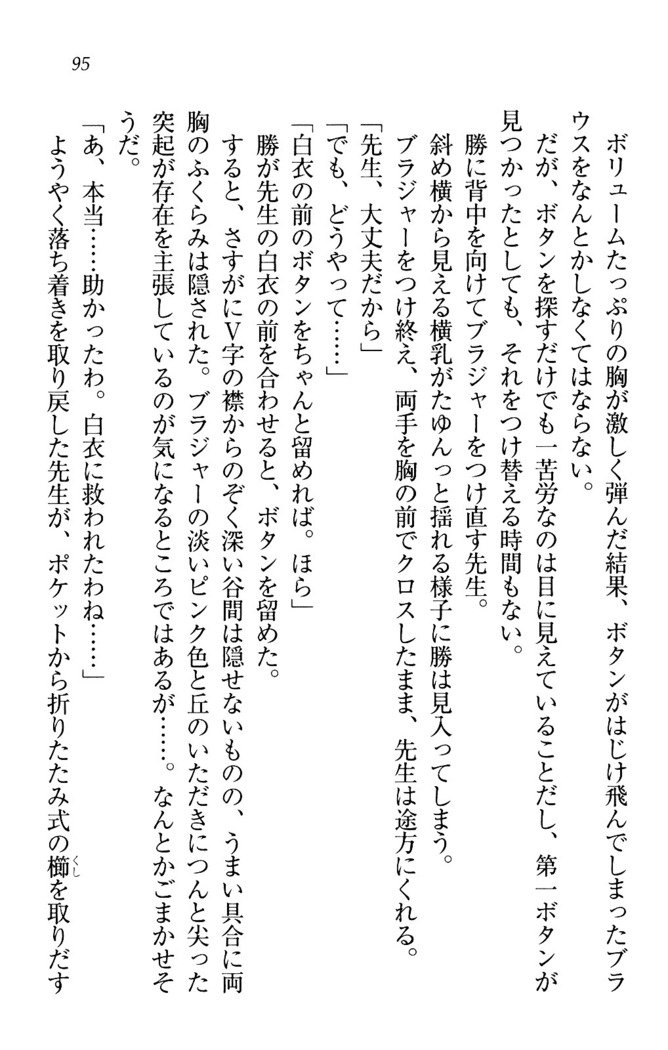 95
ボリュームたっぷりの胸が激しく弾んだ結果、ボタンがはじけ飛んでしまったブラ
ウスをなんとかしなくてはならない。
だが、ボタンを探すだけでも一苦労なのは目に見えていることだし、第一ボタンが
見つかったとしても、それをつけ替える時間もない。
勝に背中を向けてブラジャーをつけ直す先生。
斜め横から見える横乳がたゆんっと揺れる様子に勝は見入ってしまう。
ブラジャーをつけ終え、両手を胸の前でクロスしたまま、先生は途方にくれる。
「先生、大丈夫だから」
「でも、どうやって……」
「白衣の前のボタンをちゃんと留めれば。ほら」
勝が先生の白衣の前を合わせると、ボタンを留めた。
すると、さすがにV字の襟からのぞく深い谷間は隠せないものの、うまい具合に両
胸のふくらみは隠された。ブラジャーの淡いピンク色と丘のいただきにつんと尖った
突起が存在を主張しているのが気になるところではあるが……。なんとかごまかせそ
うだ。
「あ、本当……助かったわ。白衣に救われたわね……」
ようやく落ち着きを取り戻した先生が、ポケットから折りたたみ式の櫛くしを取りだす